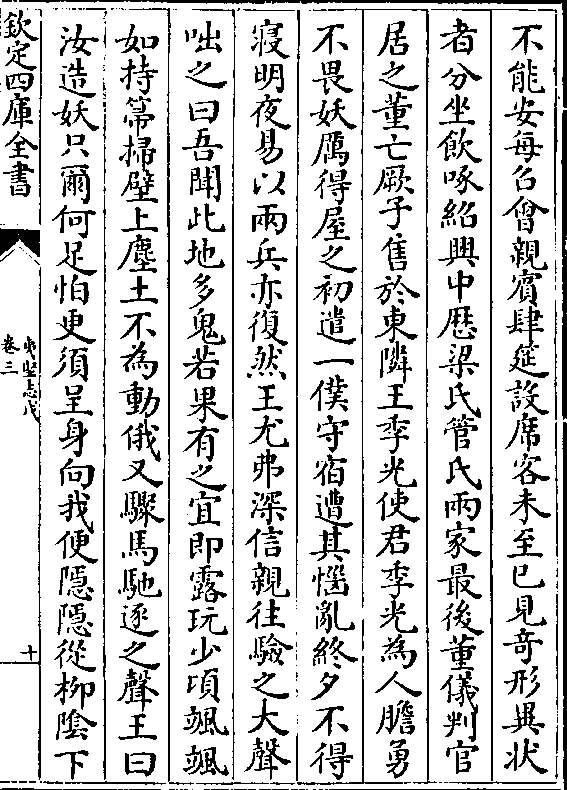 不能安每召會親賓肆筵設席客未至已見奇形異状
者分坐飲啄紹興中歴梁氏管氏兩家最後董儀判官
居之董亡厥子售於東隣王季光使君季光為人膽勇
不畏妖厲得屋之初遣一僕守宿遭其惱亂終夕不得
寢明夜易以兩兵亦復然王尤弗深信親往驗之大聲
咄之曰吾聞此地多鬼若果有之宜即露玩少頃颯颯
如持箒掃壁上塵土不為動俄又驟馬馳逐之聲王曰
汝造妖只爾何足怕更須呈身向我便隱隱從柳陰下
欽定四庫全書
夷堅志戊
卷三
十